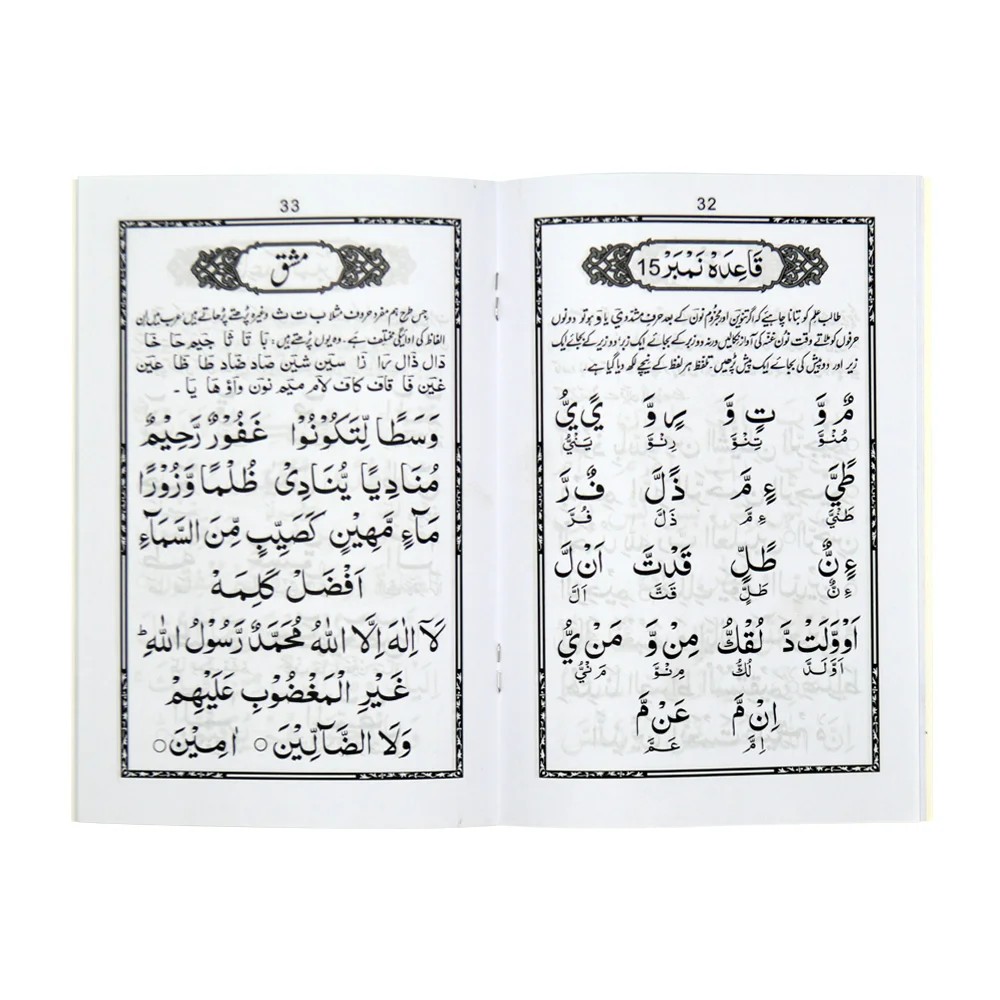 32
قَاعِدَہ نَمْبَرْ 15
طالب علم کو بتانا چاہیئے کہ اگر تنوین اور مجزوم نون کے بعد حرف مشدد ی یا و ہو تو دونوں
حرفوں کو ملاتے وقت نون غنہ کی آواز نکالیں ورنہ دو زبر کے بجائے ایک زبر، دو زیر کے بجائے ایک
زیر اور دو پیش کی بجائے ایک پیش پڑھیں۔ تلفظ ہر لفظ کے نیچے لکھ دیا گیا ہے۔
مٌ وَّ تٍ وَّ رٍ وَّ يً يُّ
مُنْوَّ تِنْوَّ رِنْوَّ يَنْيُّ
طً يَّ ءٍ مَّ ذً لَّ فٌ رَّ
طَنْيَّ ءِ مَّ ذَلَّ فُرَّ
ءٍ نٌّ طً لٍّ قَدْ تَّ اَنْ لَّ
ءِ نٌّ طَلٍّ قَتَّ اَلَّ
اَوْ وَّلَتْ دَّ لُقْكُّ مِنْ وَّ مَنْ يُّ
اَوَّلَدَّ لُكُّ مِنْوَّ مَنْيُّ
اِنْ مَّ عَنْ مَّ
اِمَّ عَمَّ
33
مشق
جس طرح ہم مفرد حروف مثلا ب ت ث وغیرہ پڑھتے پڑھاتے ہیں، عرب میں ان
الفاظ کی ادائیگی مختلف ہے۔ وہ یوں پڑھتے ہیں: بَا تَا ثَا جِيم حَا خَا
دَال ذَال رَا زَا سِين شِين صَاد ضَاد طَا ظَا عَين
غَين فَا قَاف كَاف لَام مِيم نُون وَاوْ هَا يَا۔
وَسَطًا لِّتَكُوْنُوْا غَفُوْرٌ رَّحِيْمٌ
مُنَادِيًا يُّنَادِىْ ظُلْمًا وَّزُوْرًا
مَآءٍ مَّهِيْنٍ كَصَيِّبٍ مِّنَ السَّمَآءِ
اَفْضَلْ كَلِمَهْ
لَآ اِلٰهَ اِلَّا اللّٰهُ مُحَمَّدٌ رَّسُوْلُ اللّٰهِ ؕ
غَيْرِ الْمَغْضُوْبِ عَلَيْهِمْ
وَلَا الضَّآلِّيْنَ ○ اٰمِيْنَ ○